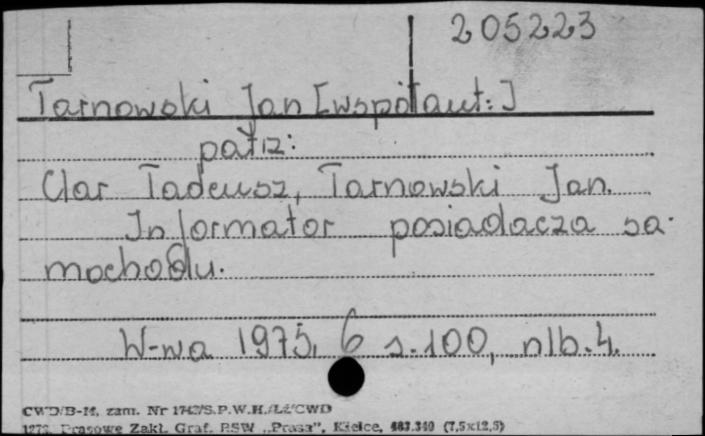 205223
Tarnowski Jan [współaut:]
patrz:
Clar Tadeusz, Tarnowski Jan.
Informator posiadacza sa-
mochodu.
W-wa 1975, 6 s. 100, nlb. 4.
CWD/B-14, zam. Nr 1742/S.P.W.H./Lź/CWD
Prasowe Zakł. Graf. RSW „Prasa”, Kielce, (7,5x12,5)